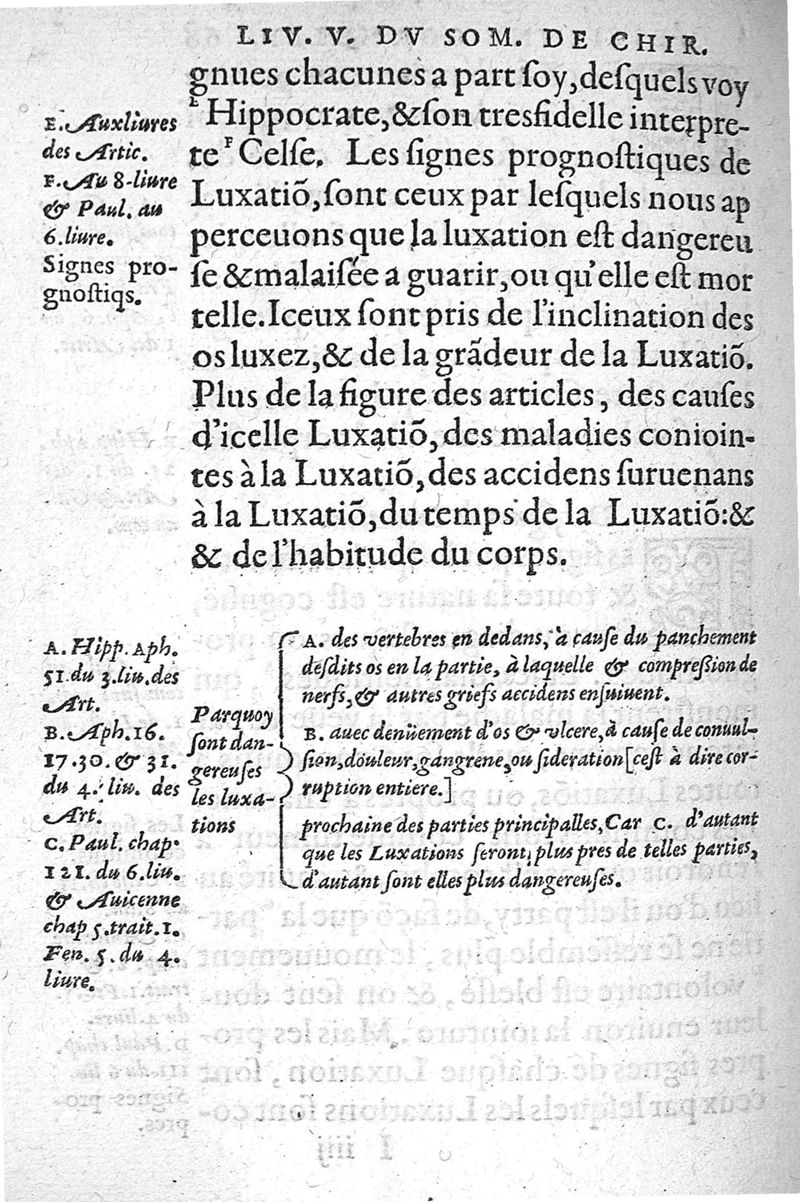 LIV. V. DV SOM. DE CHIR.
gnues chacunes a part ſoy, deſquels voy
ᴱ Hippocrate, & ſon treſfidelle interpre-
te ᶠ Celſe. Les ſignes prognoſtiques de
Luxatiõ, ſont ceux par leſquels nous ap
perceuons que la luxation eſt dangereu
ſe & malaiſée a guarir, ou qu'elle eſt mor
telle. Iceux ſont pris de l'inclination des
os luxez, & de la grãdeur de la Luxatiõ.
Plus de la figure des articles, des cauſes
d'icelle Luxatiõ, des maladies conioin-
tes à la Luxatiõ, des accidens ſuruenans
à la Luxatiõ, du temps de la Luxatiõ: &
& de l'habitude du corps.
E. Auxliures
des Artic.
F. Au 8-liure
& Paul. au
6. liure.
Signes pro-
gnoſtiqs.
A. Hipp. Aph.
51. du 3. liu. des
Art.
B. Aph. 16.
17. 30. & 31.
du 4. liu. des
Art.
C. Paul. chap.
121. du 6. liu.
& Auicenne
chap 5. trait. 1.
Fen. 5. du 4.
liure.
Parquoy
ſont dan-
gereuſes
les luxa-
tions
A. des vertebres en dedans, à cauſe du panchement
deſdits os en la partie, à laquelle & compreſsion de
nerfs, & autres griefs accidens enſuiuent.
B. auec denüement d'os & vlcere, à cauſe de conuul-
ſion, douleur, gangrene, ou ſideration [ceſt à dire cor-
ruption entiere.]
prochaine des parties principalles, Car C. d'autant
que les Luxations ſeront plus pres de telles parties,
d'autant ſont elles plus dangereuſes.